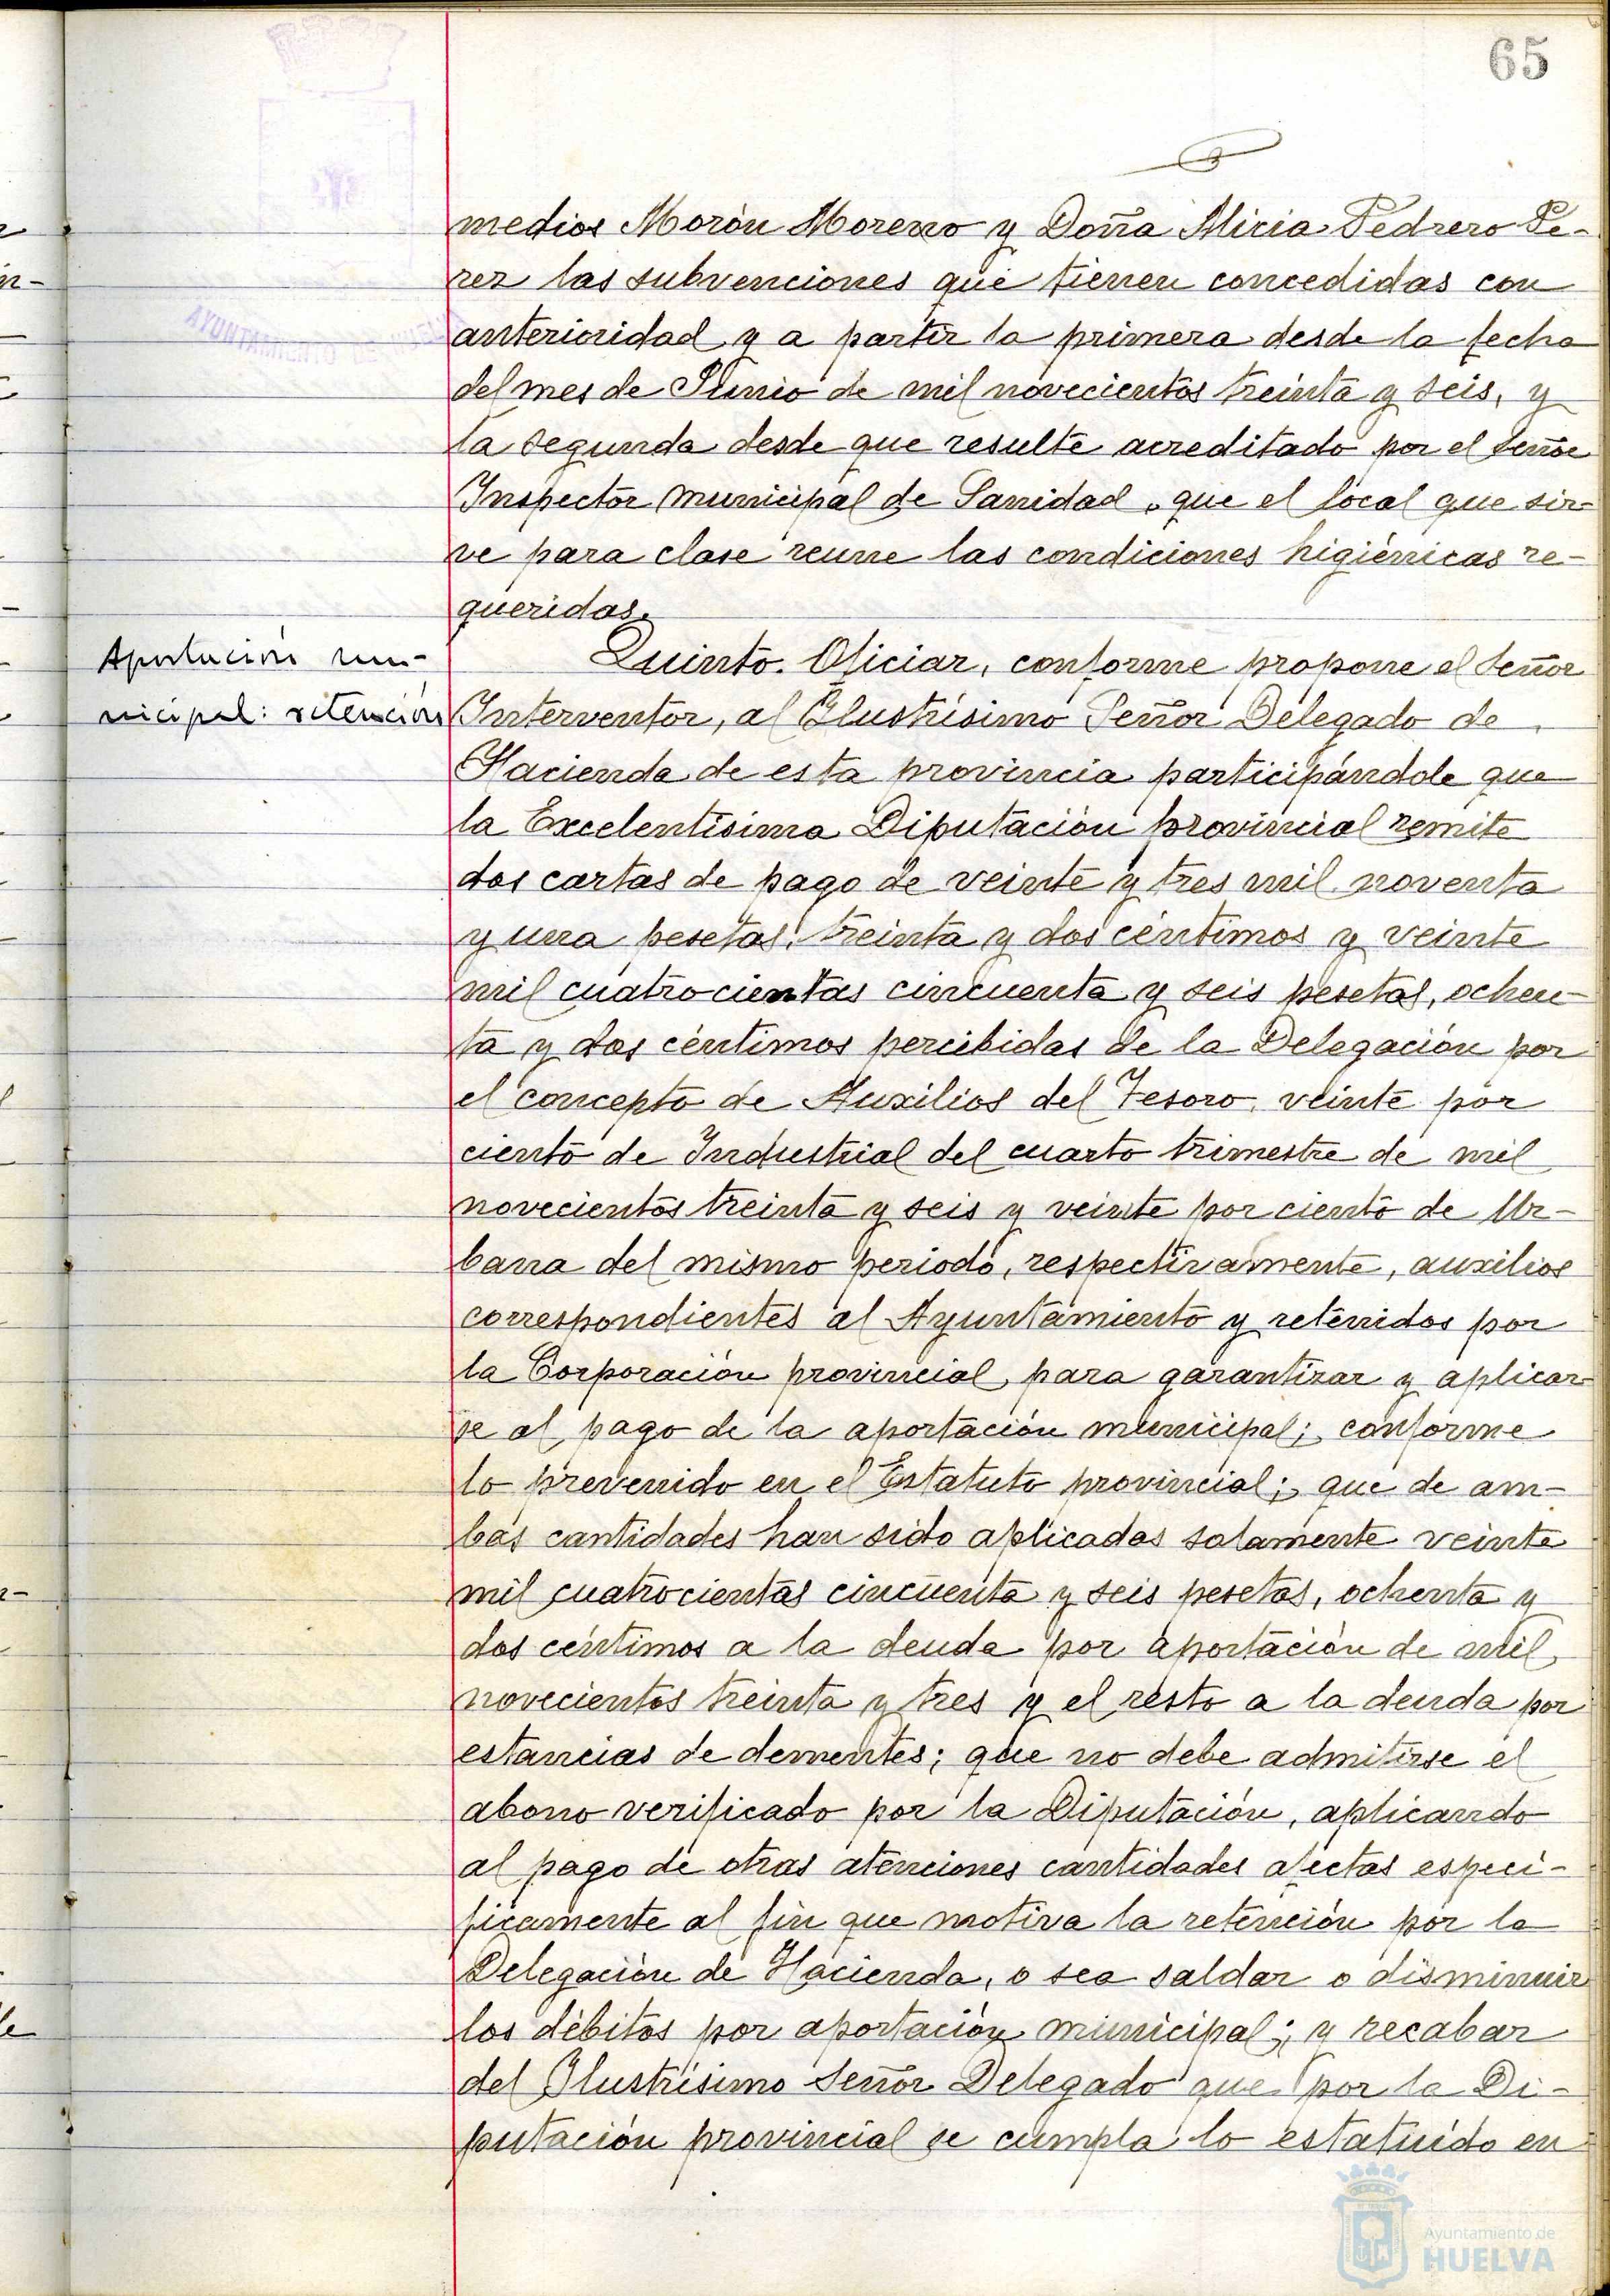 65
medios Morón Moreno y Doña Miria Pedrero Pe-
rez las subvenciones que tienen concedidas con
anterioridad y a partir la primera desde la fecha
del mes de Junio de mil novecientos treinta y seis, y
la segunda desde que resulte acreditado por el señor
Inspector municipal de Sanidad, que el local que sir-
ve para clase reune las condiciones higiénicas re-
queridas.
Aportación mu-
nicipal: retención
Quinto. Oficiar, conforme propone el Señor
Interventor, al Ilustrísimo Señor Delegado de
Hacienda de esta provincia participándole que
la Excelentísima Diputación provincial remite
dos cartas de pago de veinte y tres mil noventa
y una pesetas, treinta y dos céntimos y veinte
mil cuatrocientas cincuenta y seis pesetas, ochen-
ta y dos céntimos percibidas de la Delegación por
el concepto de Auxilios del Tesoro, veinte por
ciento de Industrial del cuarto trimestre de mil
novecientos treinta y seis y veinte por ciento de Ur-
bana del mismo periodo, respectivamente, auxilios
correspondientes al Ayuntamiento y retenidos por
la Corporación provincial, para garantizar y aplicar-
se al pago de la aportación municipal; conforme
lo prevenido en el Estatuto provincial; que de am-
bas cantidades han sido aplicadas solamente veinte
mil cuatrocientas cincuenta y seis pesetas, ochenta y
dos céntimos a la deuda por aportación de mil
novecientos treinta y tres y el resto a la deuda por
estancias de dementes; que no debe admitirse el
abono verificado por la Diputación, aplicando
al pago de otras atenciones cantidades afectas especi-
ficamente al fin que motiva la retención por la
Delegación de Hacienda, o sea saldar o disminuir
los débitos por aportación municipal; y recabar
del Ilustrísimo Señor Delegado que por la Di-
putación provincial se cumpla lo estatuído en
AYUNTAMIENTO DE HUELVA
Ayuntamiento de
HUELVA